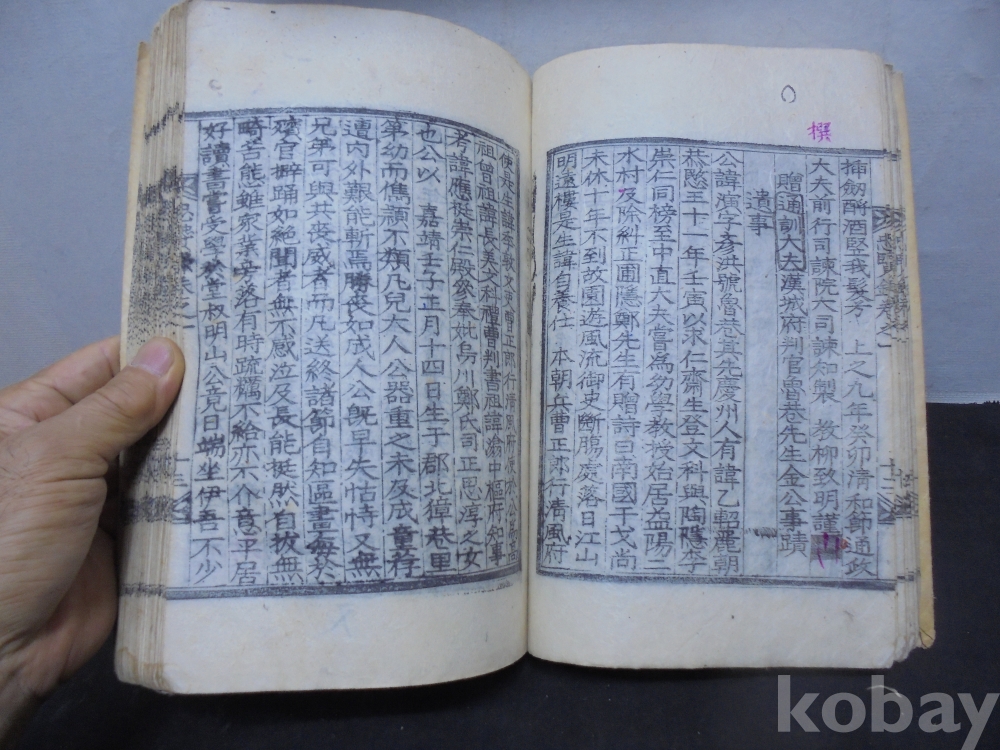 撰
揷劒酹酒堅我髮 上之九年癸卯淸和節通政
大夫前行司諫院大司諫知製 敎柳致明謹
贈通訓大夫漢城府判官魯巷先生金公事蹟
遺事
公諱演字彦洪號魯巷其先慶州人有諱乙軺麗朝
恭愍王十一年壬寅以求仁齋生登文科與陶隱李
崇仁同榜至中直大夫嘗爲幼學敎授始居益陽二
水村及除糾正圃隱鄭先生有贈詩曰南國干戈尙
未休十年不到故園遊風流御史斷膓處落日江山
明遠樓是生諱自養仕 本朝兵曹正郞行淸風府
使是生諱季敬文吏曹正郞行淸風府使於公爲高
祖曾祖諱長美文科禮曹判書祖諱渝中樞府知事
考諱應 崇仁殿叅奉妣烏川鄭氏司正思淳之女
也公以 嘉靖壬子正月十四日生于郡北獐巷里
第幼而儁穎不類凡兒大人公器重之未及成童荐
遭內外艱能斬焉勝喪如成人公旣早失怙恃又無
兄弟可與共喪威者而凡送終諸節自知區畫每於
殯宮擗踊如絶聞者無不感泣及長能挺然自拔無
畸苦態雖家業芒落有時疏糲不給亦不介意平居
好讀書嘗受學於堂叔明山公竟日端坐伊吾不少
十二
kobay